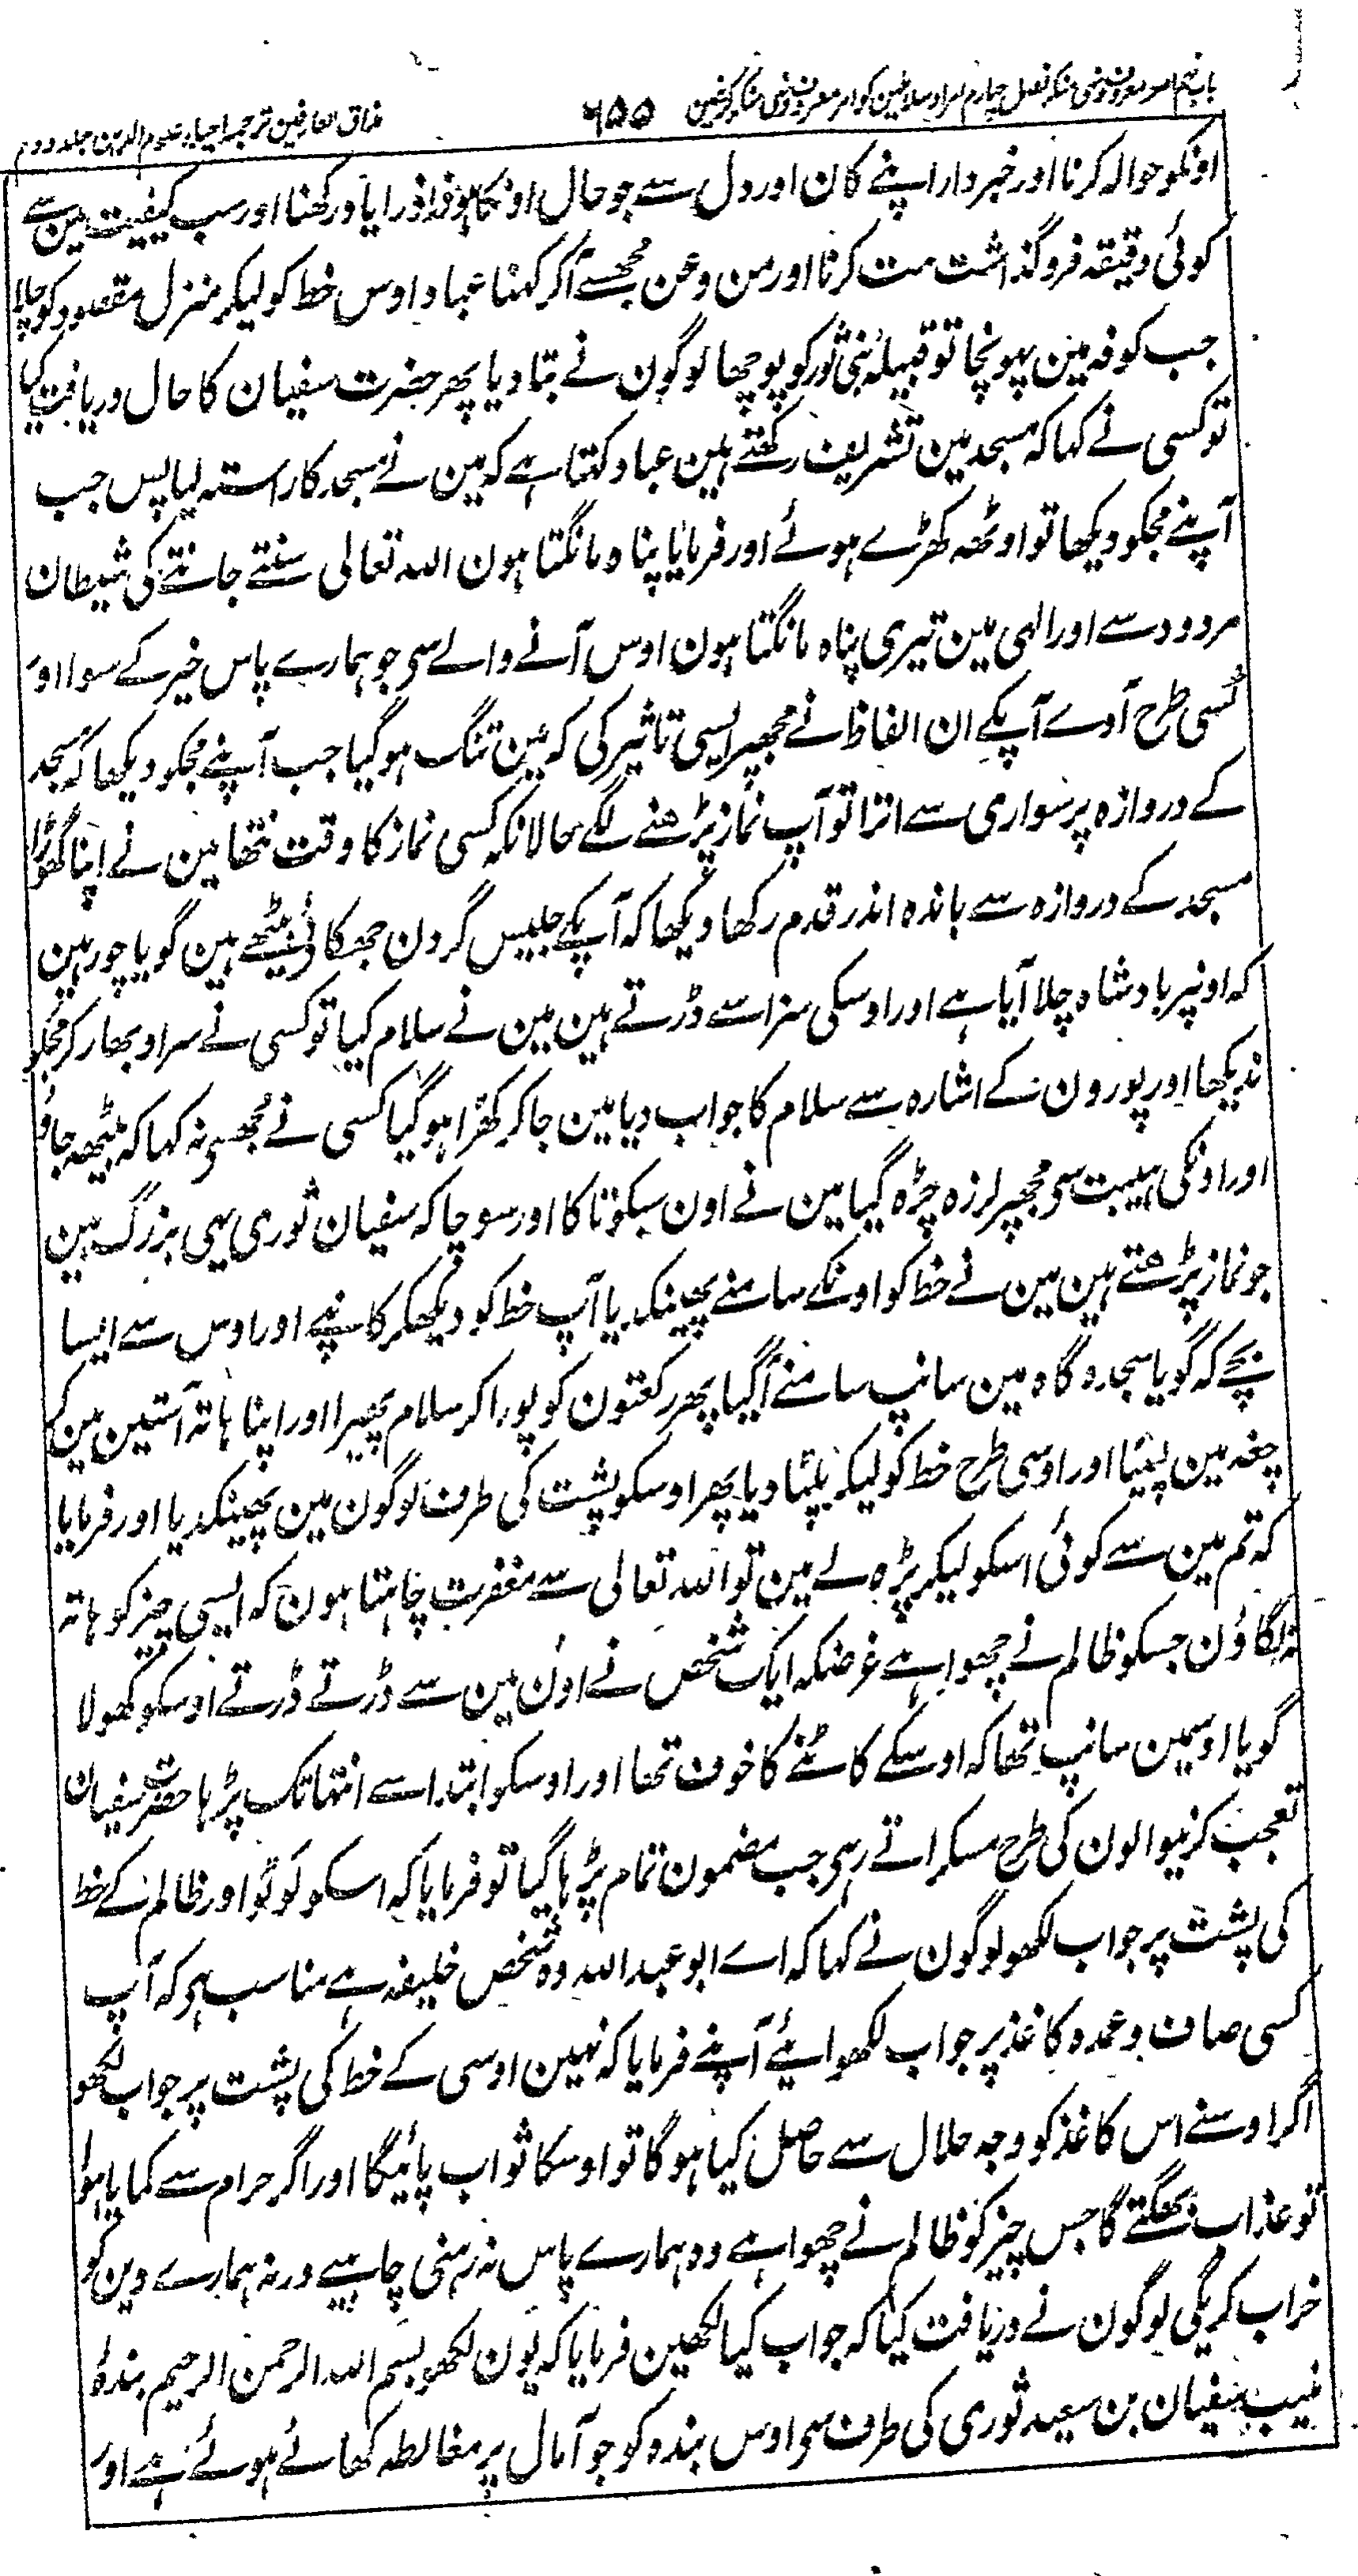 باب نہم امر معروف و نہی منکر فصل چہارم امرا و سلاطین کو امر معروف و نہی منکر کرنے مین ۶۵۵ مذاق العارفین ترجمہ احیاء علوم الدین جلد دوم
اونکو حوالہ کرنا اور خبردار اپنے کان اور دل سے جو حال اونکا ہو ذرا ذرا یاد رکھنا اور سب کیفیت مین سے
کوئی دقیقہ فروگذاشت مت کرنا اور من وعن مجھسے آکر کہنا عباد اوس خط کو لیکر منزل مقصود کو چلا
جب کوفہ مین پہونچا تو قبیلہ بنی ثور کو پوچھا لوگون نے بتا دیا پھر حضرت سفیان کا حال دریافت کیا
تو کسی نے کہا کہ مسجد مین تشریف رکھتے ہین عباد کہتا ہے کہ مین نے مسجد کا راستہ لیا پس جب
آپنے مجکو دیکھا تو اوٹھہ کھڑے ہوئے اور فرمایا پناہ مانگتا ہون اللہ تعالی سنتے جانتے کی شیطان
مردود سے اور الہی مین تیری پناہ مانگتا ہون اوس آنے والے سی جو ہمارے پاس خیر کے سوا اور
کسی طرح آوے آپکے ان الفاظ نے مجھپر ایسی تاثیر کی کہ مین تنگ ہوگیا جب آپنے مجکو دیکھا کہ مسجد
کے دروازہ پر سواری سے اترا تو آپ نماز پڑھنے لگے حالانکہ کسی نماز کا وقت نتھا مین نے اپنا گھوڑا
مسجد کے دروازہ سے باندہ اندر قدم رکھا دیکھا کہ آپکے جلیس گردن جھکائے بیٹھے ہین گویا چور ہین
کہ اونپر بادشاہ چلا آیا ہے اور اوسکی سزا سے ڈرتے ہین مین نے سلام کیا تو کسی نے سر اوبھار کر مجکو
ندیکھا اور پورون کے اشارہ سے سلام کا جواب دیا مین جاکر کھڑا ہوگیا کسی نے مجھسی نہ کہا کہ بیٹھہ جاؤ
اور اونکی ہیبت سی مجھپر لرزہ چڑہ گیا مین نے اون سبکو تاکا اور سوچا کہ سفیان ثوری یہی بزرگ ہین
جو نماز پڑھتے ہین مین نے خط کو اونکے سامنے پھینکدیا آپ خط کو دیکھکر کانپے اور اوس سے ایسا
بچے کہ گویا سجدہ گاہ مین سانپ سامنے آگیا پھر رکعتون کو پورا کر سلام پھیرا اور اپنا ہاتہ آستین مین کر
چغہ مین لپیٹا اور اوسی طرح خط کو لیکر پلٹا دیا پھر اوسکو پشت کی طرف لوگون مین پھینکدیا اور فرمایا
کہ تم مین سے کوئی اسکو لیکر پڑہ لے مین تو اللہ تعالی سے مغفرت چاہتا ہون کہ ایسی چیز کو ہاتہ
نہ لگاؤن جسکو ظالم نے چھوا ہے غرضکہ ایک شخص نے اون مین سے ڈرتے ڈرتے اوسکو کھولا
گویا اوسمین سانپ تھا کہ اوسکے کاٹنے کا خوف تھا اور اوسکو ابتدا سے انتہا تک پڑہا حضرت سفیان
تعجب کرنیوالون کی طرح مسکراتے رہی جب مضمون تمام پڑہا گیا تو فرمایا کہ اسکو لوٹو اور ظالم کے خط
کی پشت پر جواب لکھو لوگون نے کہا کہ اے ابو عبداللہ وہ شخص خلیفہ ہے مناسب ہی کہ آپ
کسی صاف وعمدہ کاغذ پر جواب لکھوائیے آپنے فرمایا کہ نہین اوسی کے خط کی پشت پر جواب لکھو
اگر اوسنے اس کاغذ کو وجہ حلال سے حاصل کیا ہوگا تو اوسکا ثواب پائیگا اور اگر حرام سے کمایا ہوا
تو عذاب بھگتے گا جس چیز کو ظالم نے چھوا ہے وہ ہمارے پاس نہ رہنی چاہیے ورنہ ہمارے دین کو
خراب کریگی لوگون نے دریافت کیا کہ جواب کیا لکھین فرمایا کہ یون لکھو بسم اللہ الرحمن الرحیم بندۂ
منیب سفیان بن سعید ثوری کی طرف سی اوس بندہ کو جو آمال پر مغالطہ کھائے ہوئے ہے اور